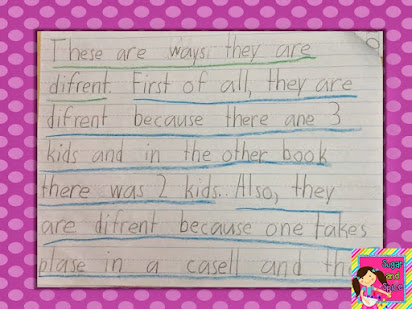 These are ways they are
difrent. First of all, they are
difrent because there are 3
kids and in the other book
there was 2 kids. Also, they
are difrent because one takes
plase in a casell and the
Sugar
and
Spice